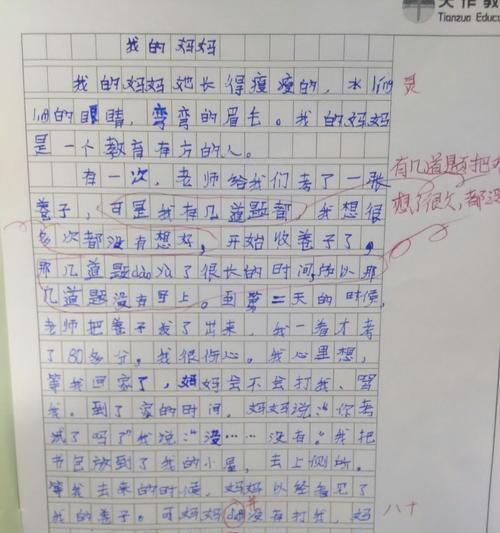 天作教
Tianzuo Educ
我的妈妈
我的妈妈她长得瘦瘦的，水ling 灵
ling的眼睛，弯弯的眉毛。我的妈妈
是一个教育有方的人。
有一次，老师给我们考了一张
卷子，可是我有几道题都，我想很
多次都没有想好，开始收卷子了，
那几道题dao 了很长的时间，所以那
几道题没有写上。到第二天的时候，
老师把卷子发了出来，我一看才考
了80多分。我很伤心。我心里想，
等我回家了，妈妈会不会打我、骂
我。到了家的时间，妈妈说：“你考
试了吗？”我说：“没……没有。”我把
书包放到了我的小屋，去上侧所。
等我去来的时候，妈妈以经看见了
我的卷子。可妈妈 没有打我，妈
有几道题
想了很久，都没
八十